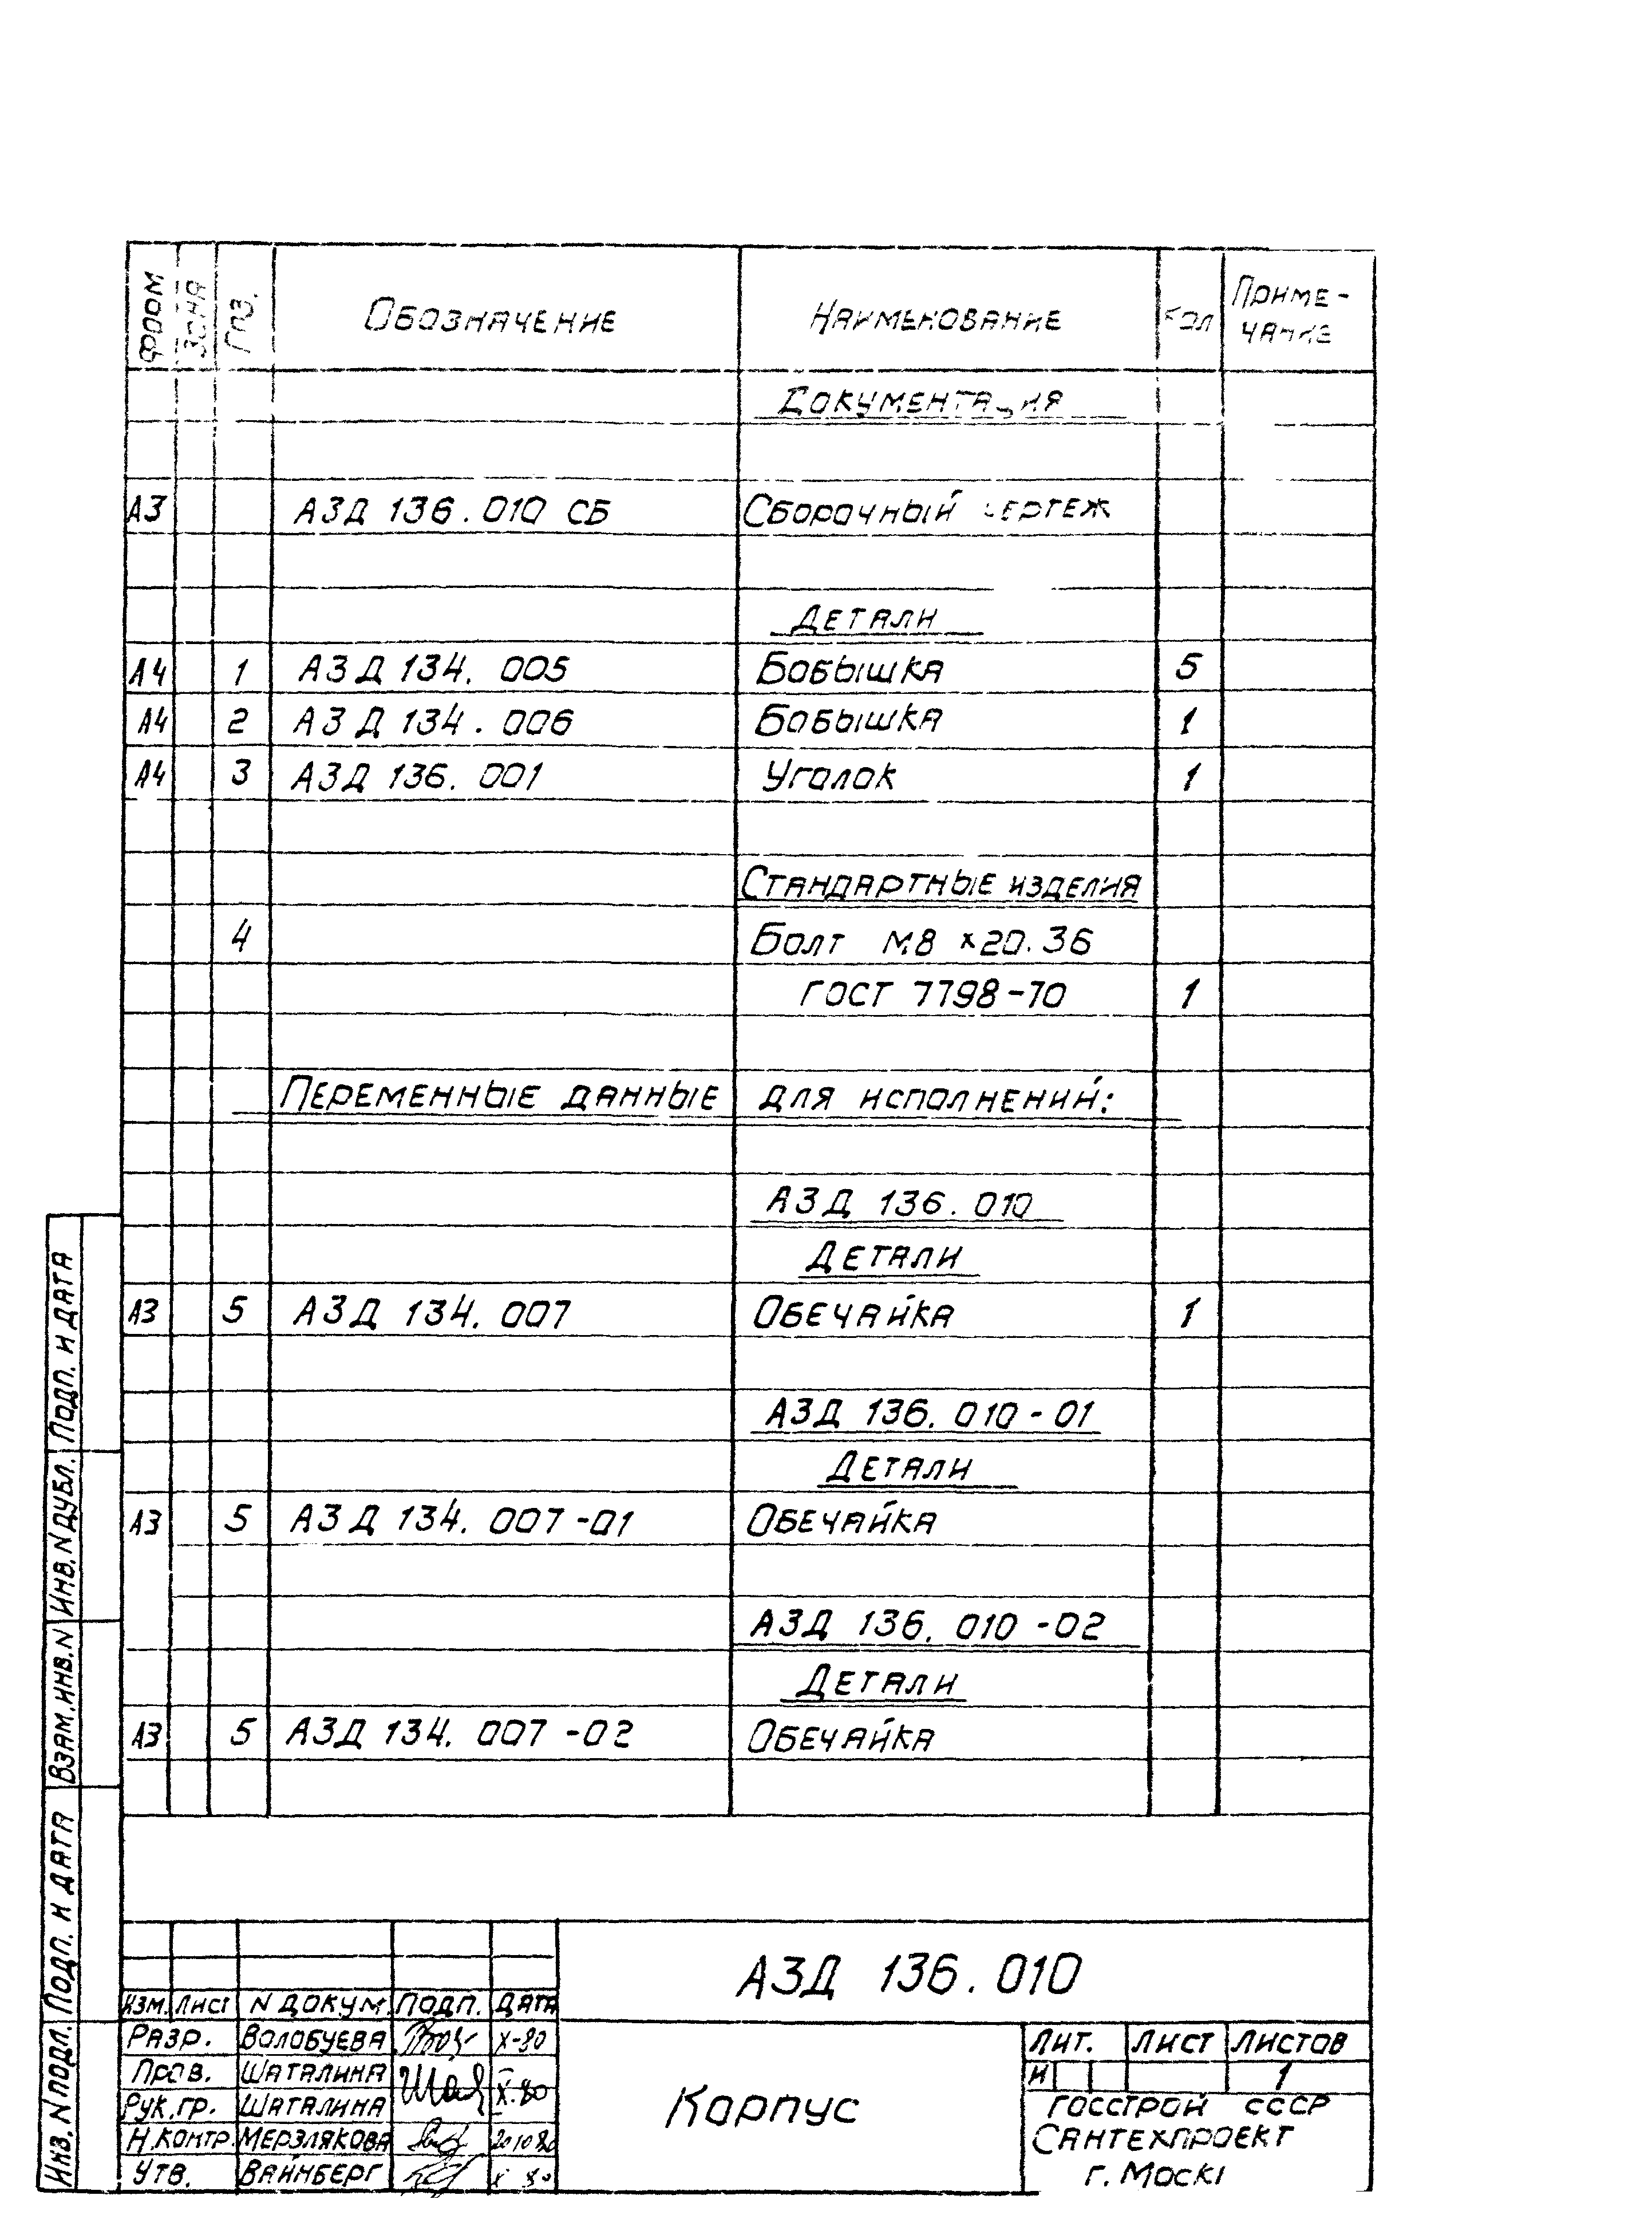 Форм Зона Поз. Обозначение Наименование Кол Приме-
чание
Документация
А3 А3Д 136.010 СБ Сборочный чертеж
Детали
А4 1 А3Д 134.005 Бобышка 5
А4 2 А3Д 134.006 Бобышка 1
А4 3 А3Д 136.001 Уголок 1
Стандартные изделия
4 Болт М8×20.36
ГОСТ 7798-70 1
Переменные данные для исполнений:
А3Д 136.010
Детали
А3 5 А3Д 134.007 Обечайка 1
А3Д 136.010-01
Детали
А3 5 А3Д 134.007-01 Обечайка
А3Д 136.010-02
Детали
А3 5 А3Д 134.007-02 Обечайка
Инв. N подл. Подп. и дата Взам. инв. N Инв. N дубл. Подп. и дата
А3Д 136.010
Изм. Лист N докум. Подп. Дата
Разр. Волобуева X-80
Пров. Шаталина X-80
Рук. гр. Шаталина
Н. контр. Мерзлякова 20 10 80
Утв. Вайнберг X 80
Корпус
Лит. Лист Листов
И 1
Госстрой СССР
Сантехпроект
г.